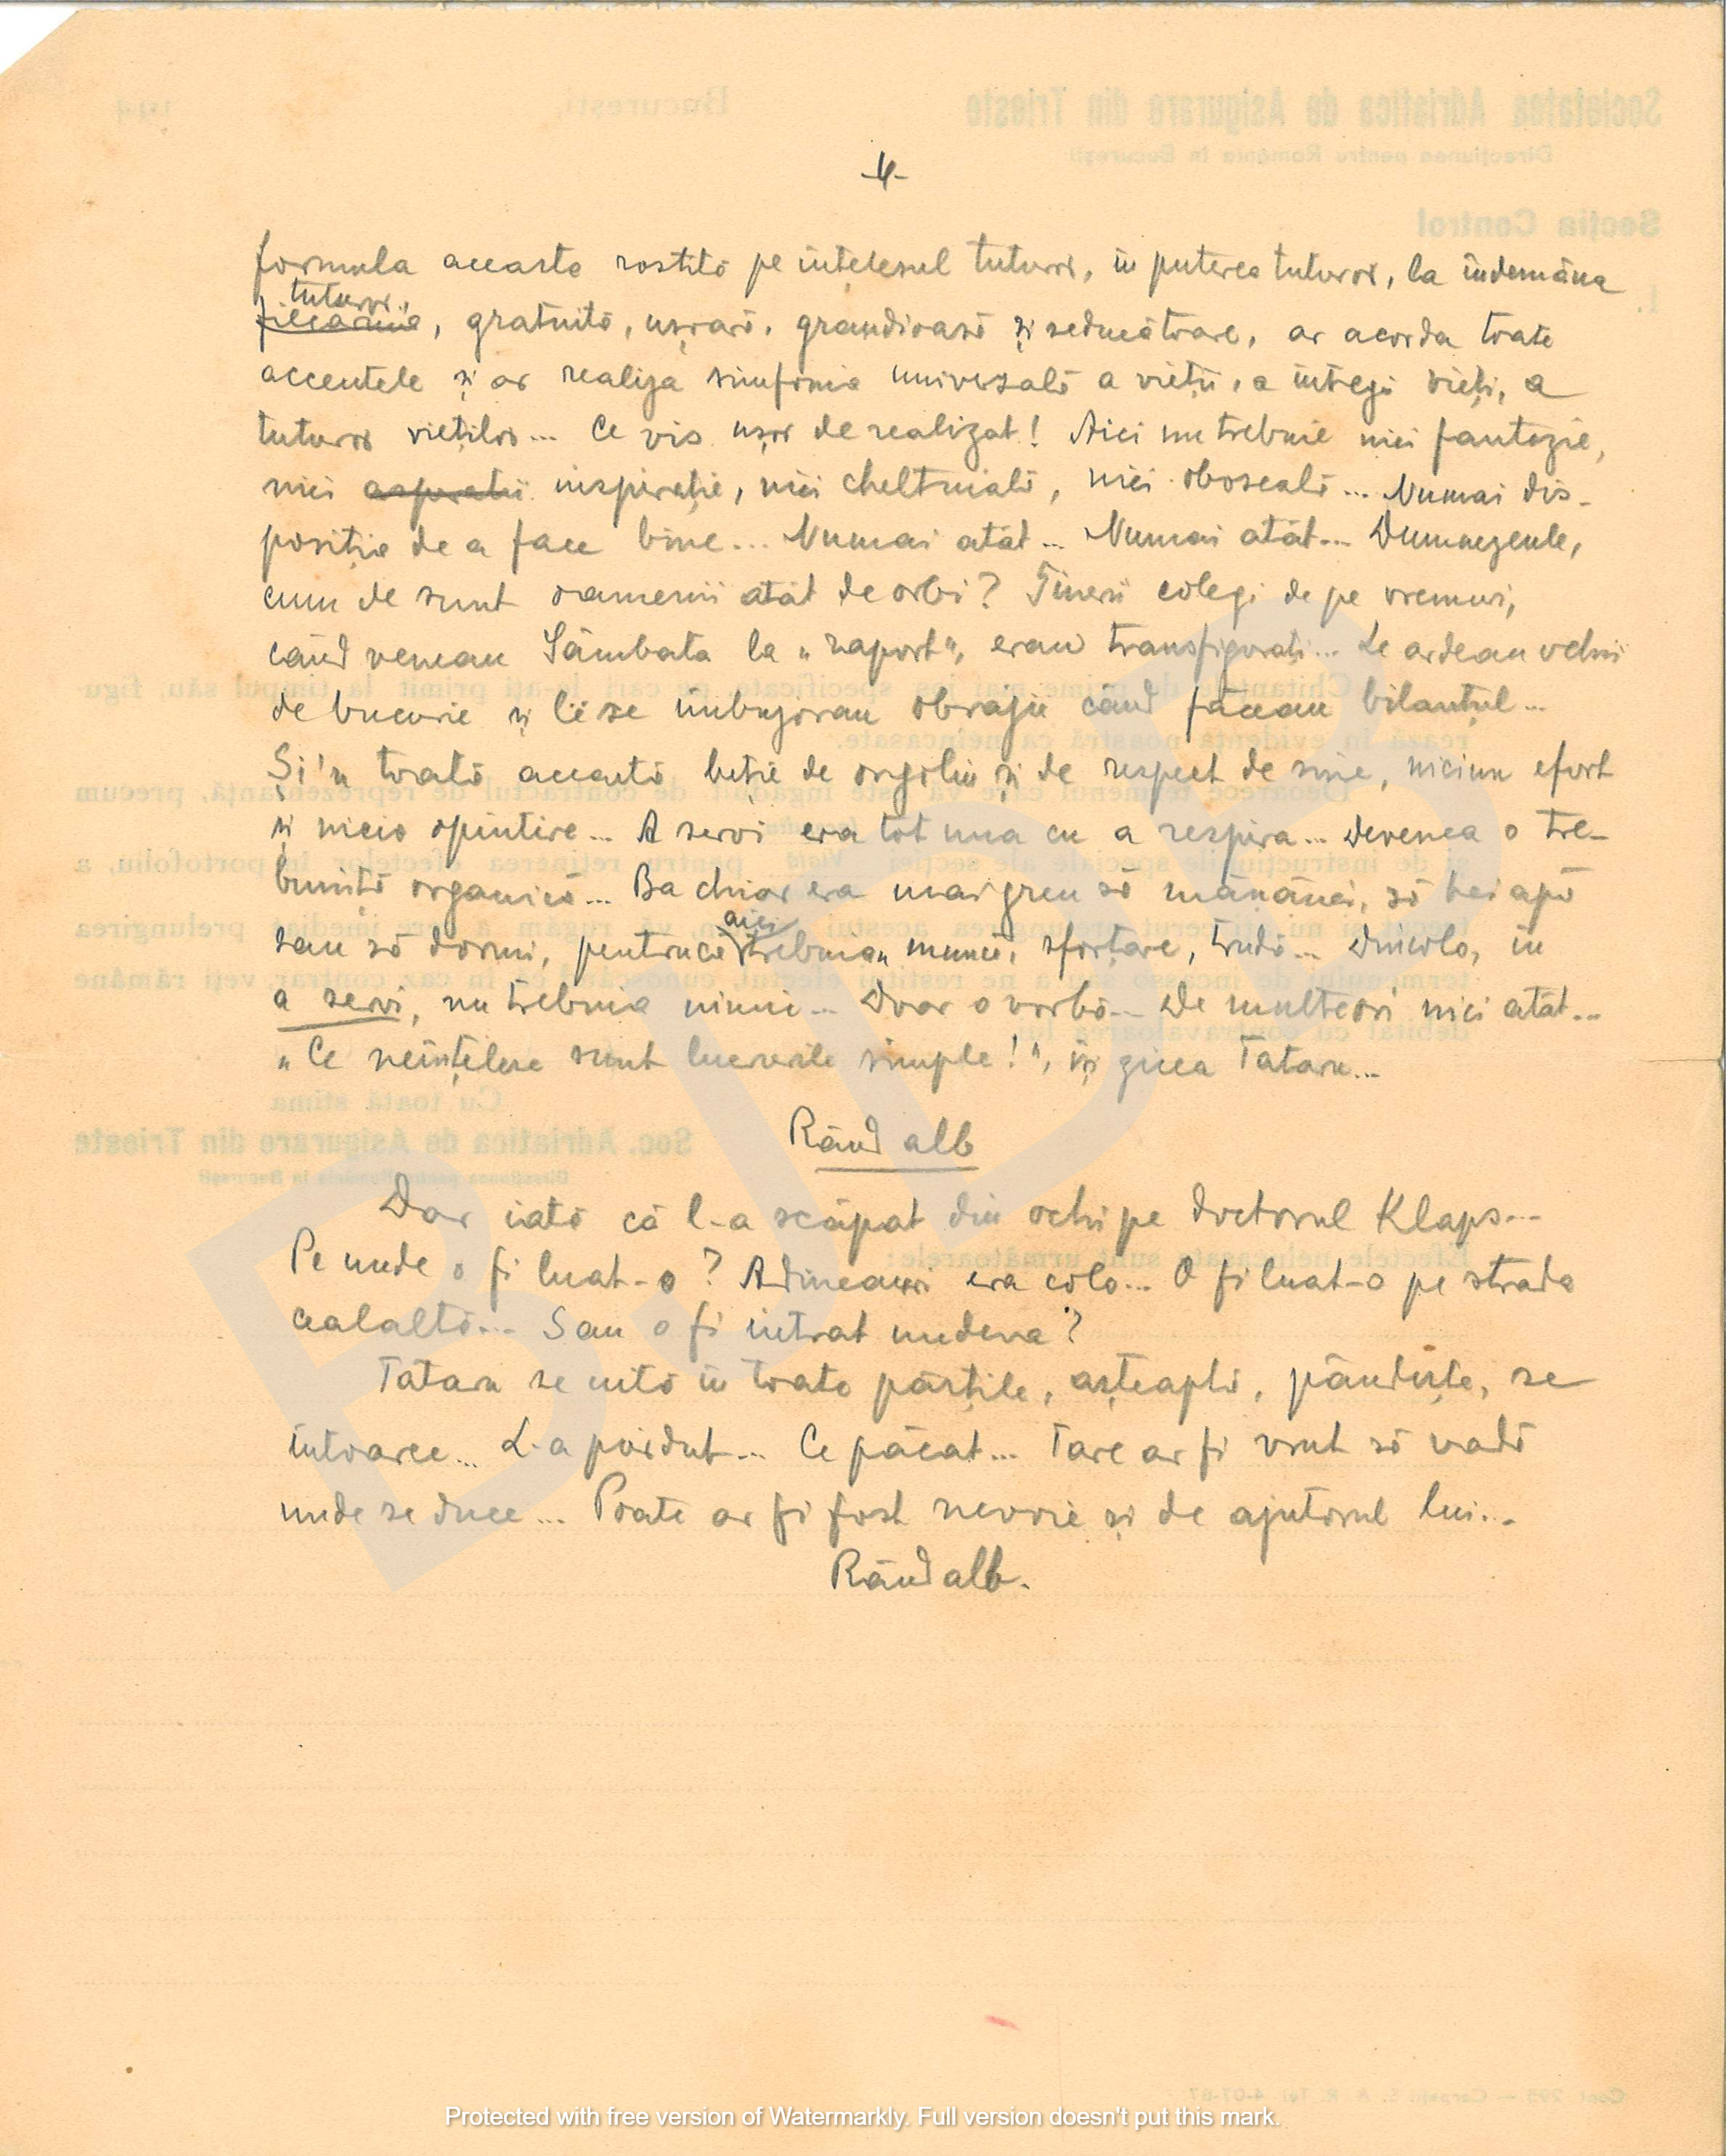 -4-
formula aceasta rostită pe înțelesul tuturor, în puterea tuturor, la îndemâna
tuturor,
fiecăruia, gratuită, ușoară, grandioasă și seducătoare, ar acorda toate
accentele și ar realiza simfonia universală a vieții, a întregii vieți, a
tuturor vieților... Ce vis ușor de realizat! Aici nu trebuie nici fantezie,
nici inspirație, nici cheltuială, nici oboseală... Numai dis-
poziția de a face bine... Numai atât... Numai atât... Dumnezeule,
cum de sunt oamenii atât de orbi? Tinerii colegi de pe vremuri,
când veneau Sâmbăta la „raport", erau transfigurați... Le ardeau ochii
de bucurie și li se îmbujorau obrajii când făceau bilanțul...
Și'n toată această beție de orgoliu și de respect de sine, niciun efort
și nicio opintire... A servi era tot una cu a respira... Devenea o tre-
buință organică... Ba chiar era mai greu să mănânci, să bei apă
aici
sau să dormi, pentrucă trebuiau muncă, sforțare, trudă... Dincolo, în
a servi, nu trebuia nimic... Doar o vorbă... De multeori nici atât...
„Ce neînțelese sunt lucrurile simple!", își zicea Tataru...
Rând alb
Dar iată că l-a scăpat din ochi pe doctorul Klaps...
Pe unde o fi luat-o? Adineauri era colo... O fi luat-o pe strada
cealaltă... Sau o fi intrat undeva?
Tataru se uită în toate părțile, așteaptă, pândește, se
întoarce... L-a pierdut... Ce păcat... Tare ar fi vrut să vadă
unde se duce... Poate ar fi fost nevoie și de ajutorul lui...
Rând alb.
BJDP
Protected with free version of Watermarkly. Full version doesn't put this mark.